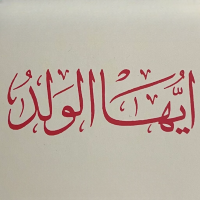 ايُّهَا الْوَلَدُ